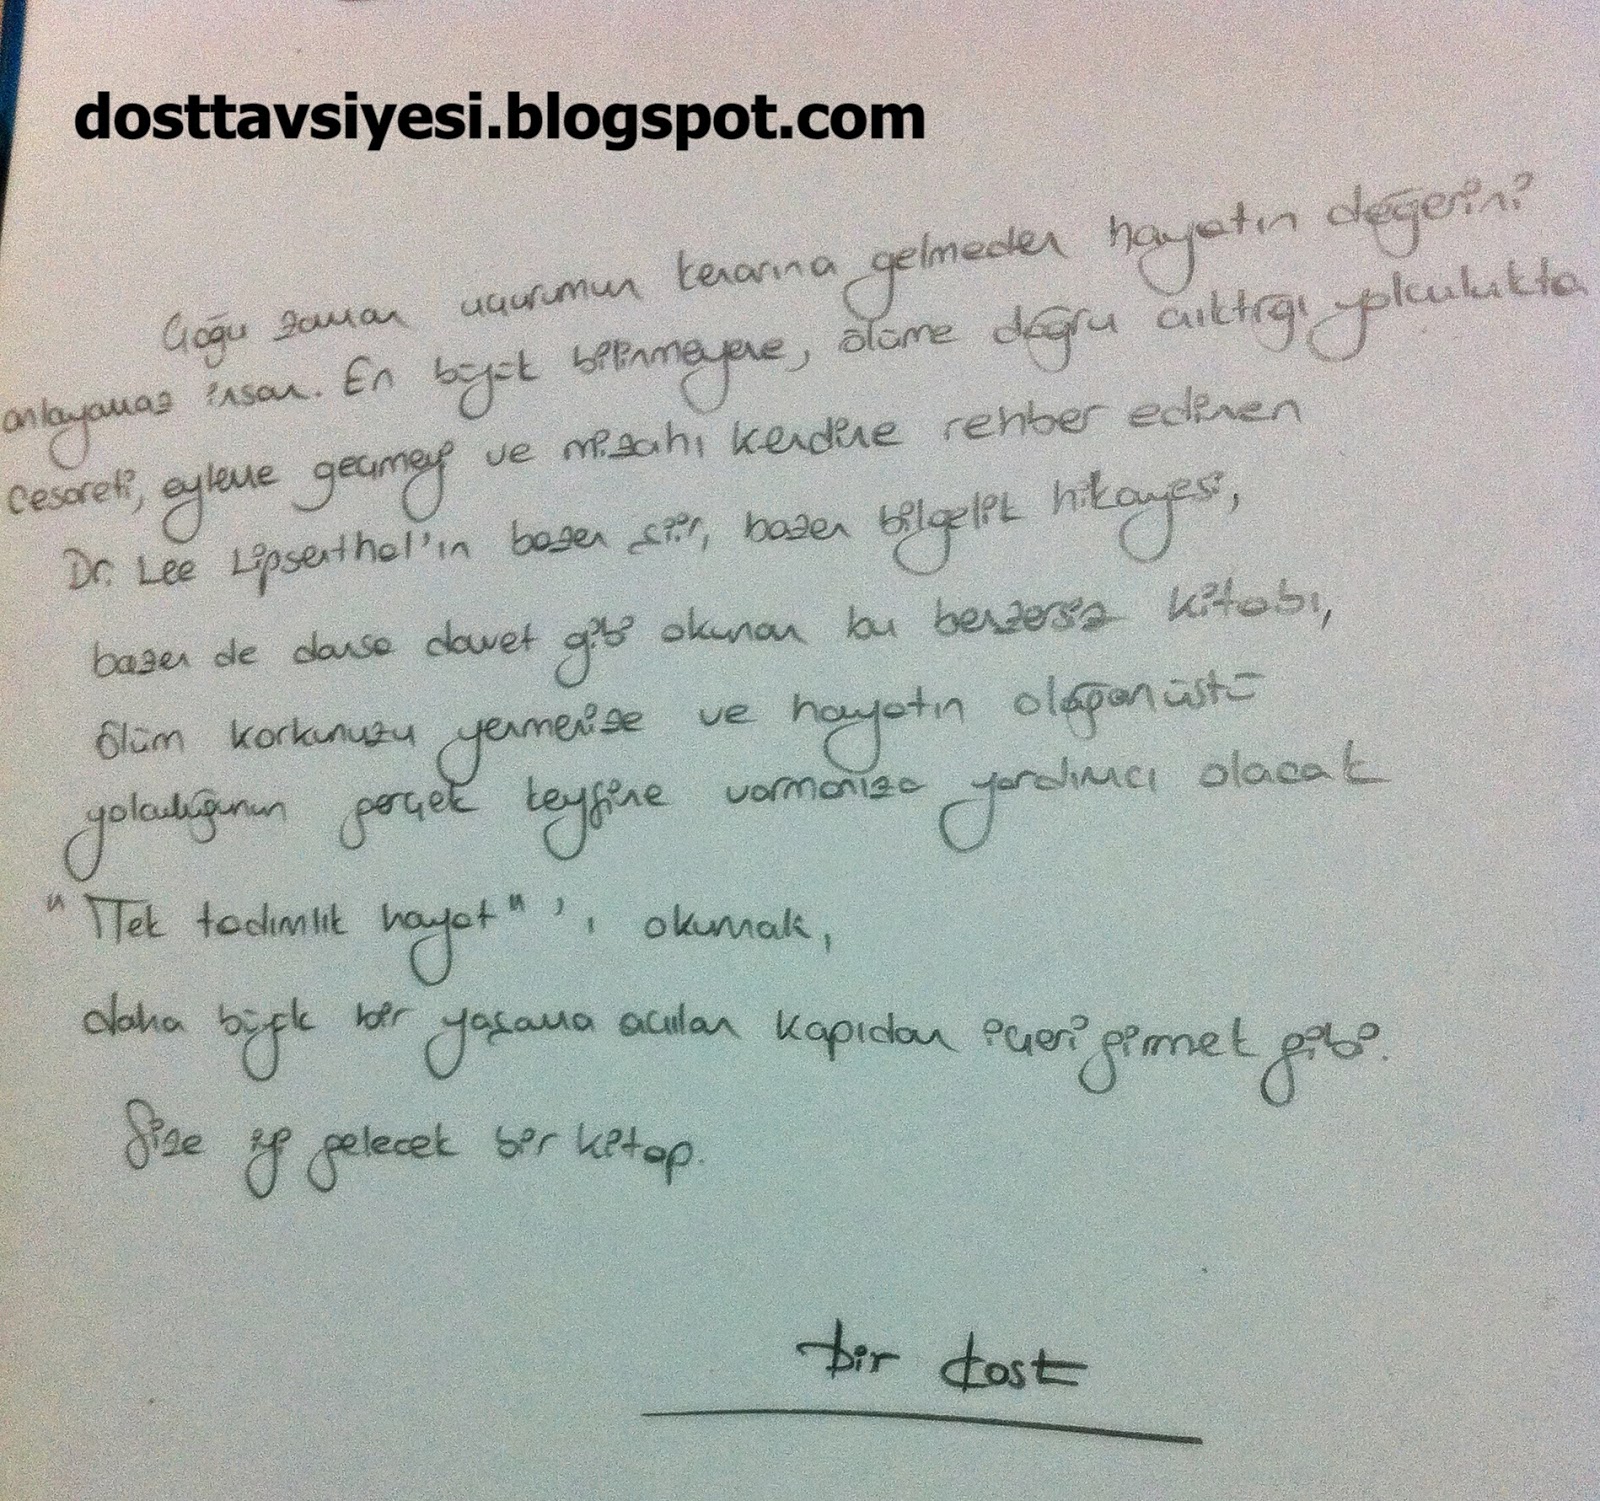 dosttavsiyesi.blogspot.com
Çoğu zaman uçurumun kenarına gelmeden hayatın değerini
anlayamaz insan. En büyük bilinmeyene, ölüme doğru çıktığı yolculukta
cesareti, eyleme geçmeyi ve mizahı kendine rehber edinen
Dr. Lee Lipsenthal'ın bazen şiir, bazen bilgelik hikayesi,
bazen de dansa davet gibi okunan bu benzersiz kitabı,
ölüm korkunuzu yenmenize ve hayatın olağanüstü
yolculuğunun gerçek keyfine varmanıza yardımcı olacak
"Tek tadımlık hayat" 'ı okumak,
daha büyük bir yaşama açılan kapıdan içeri girmek gibi.
Size iyi gelecek bir kitap.
bir dost